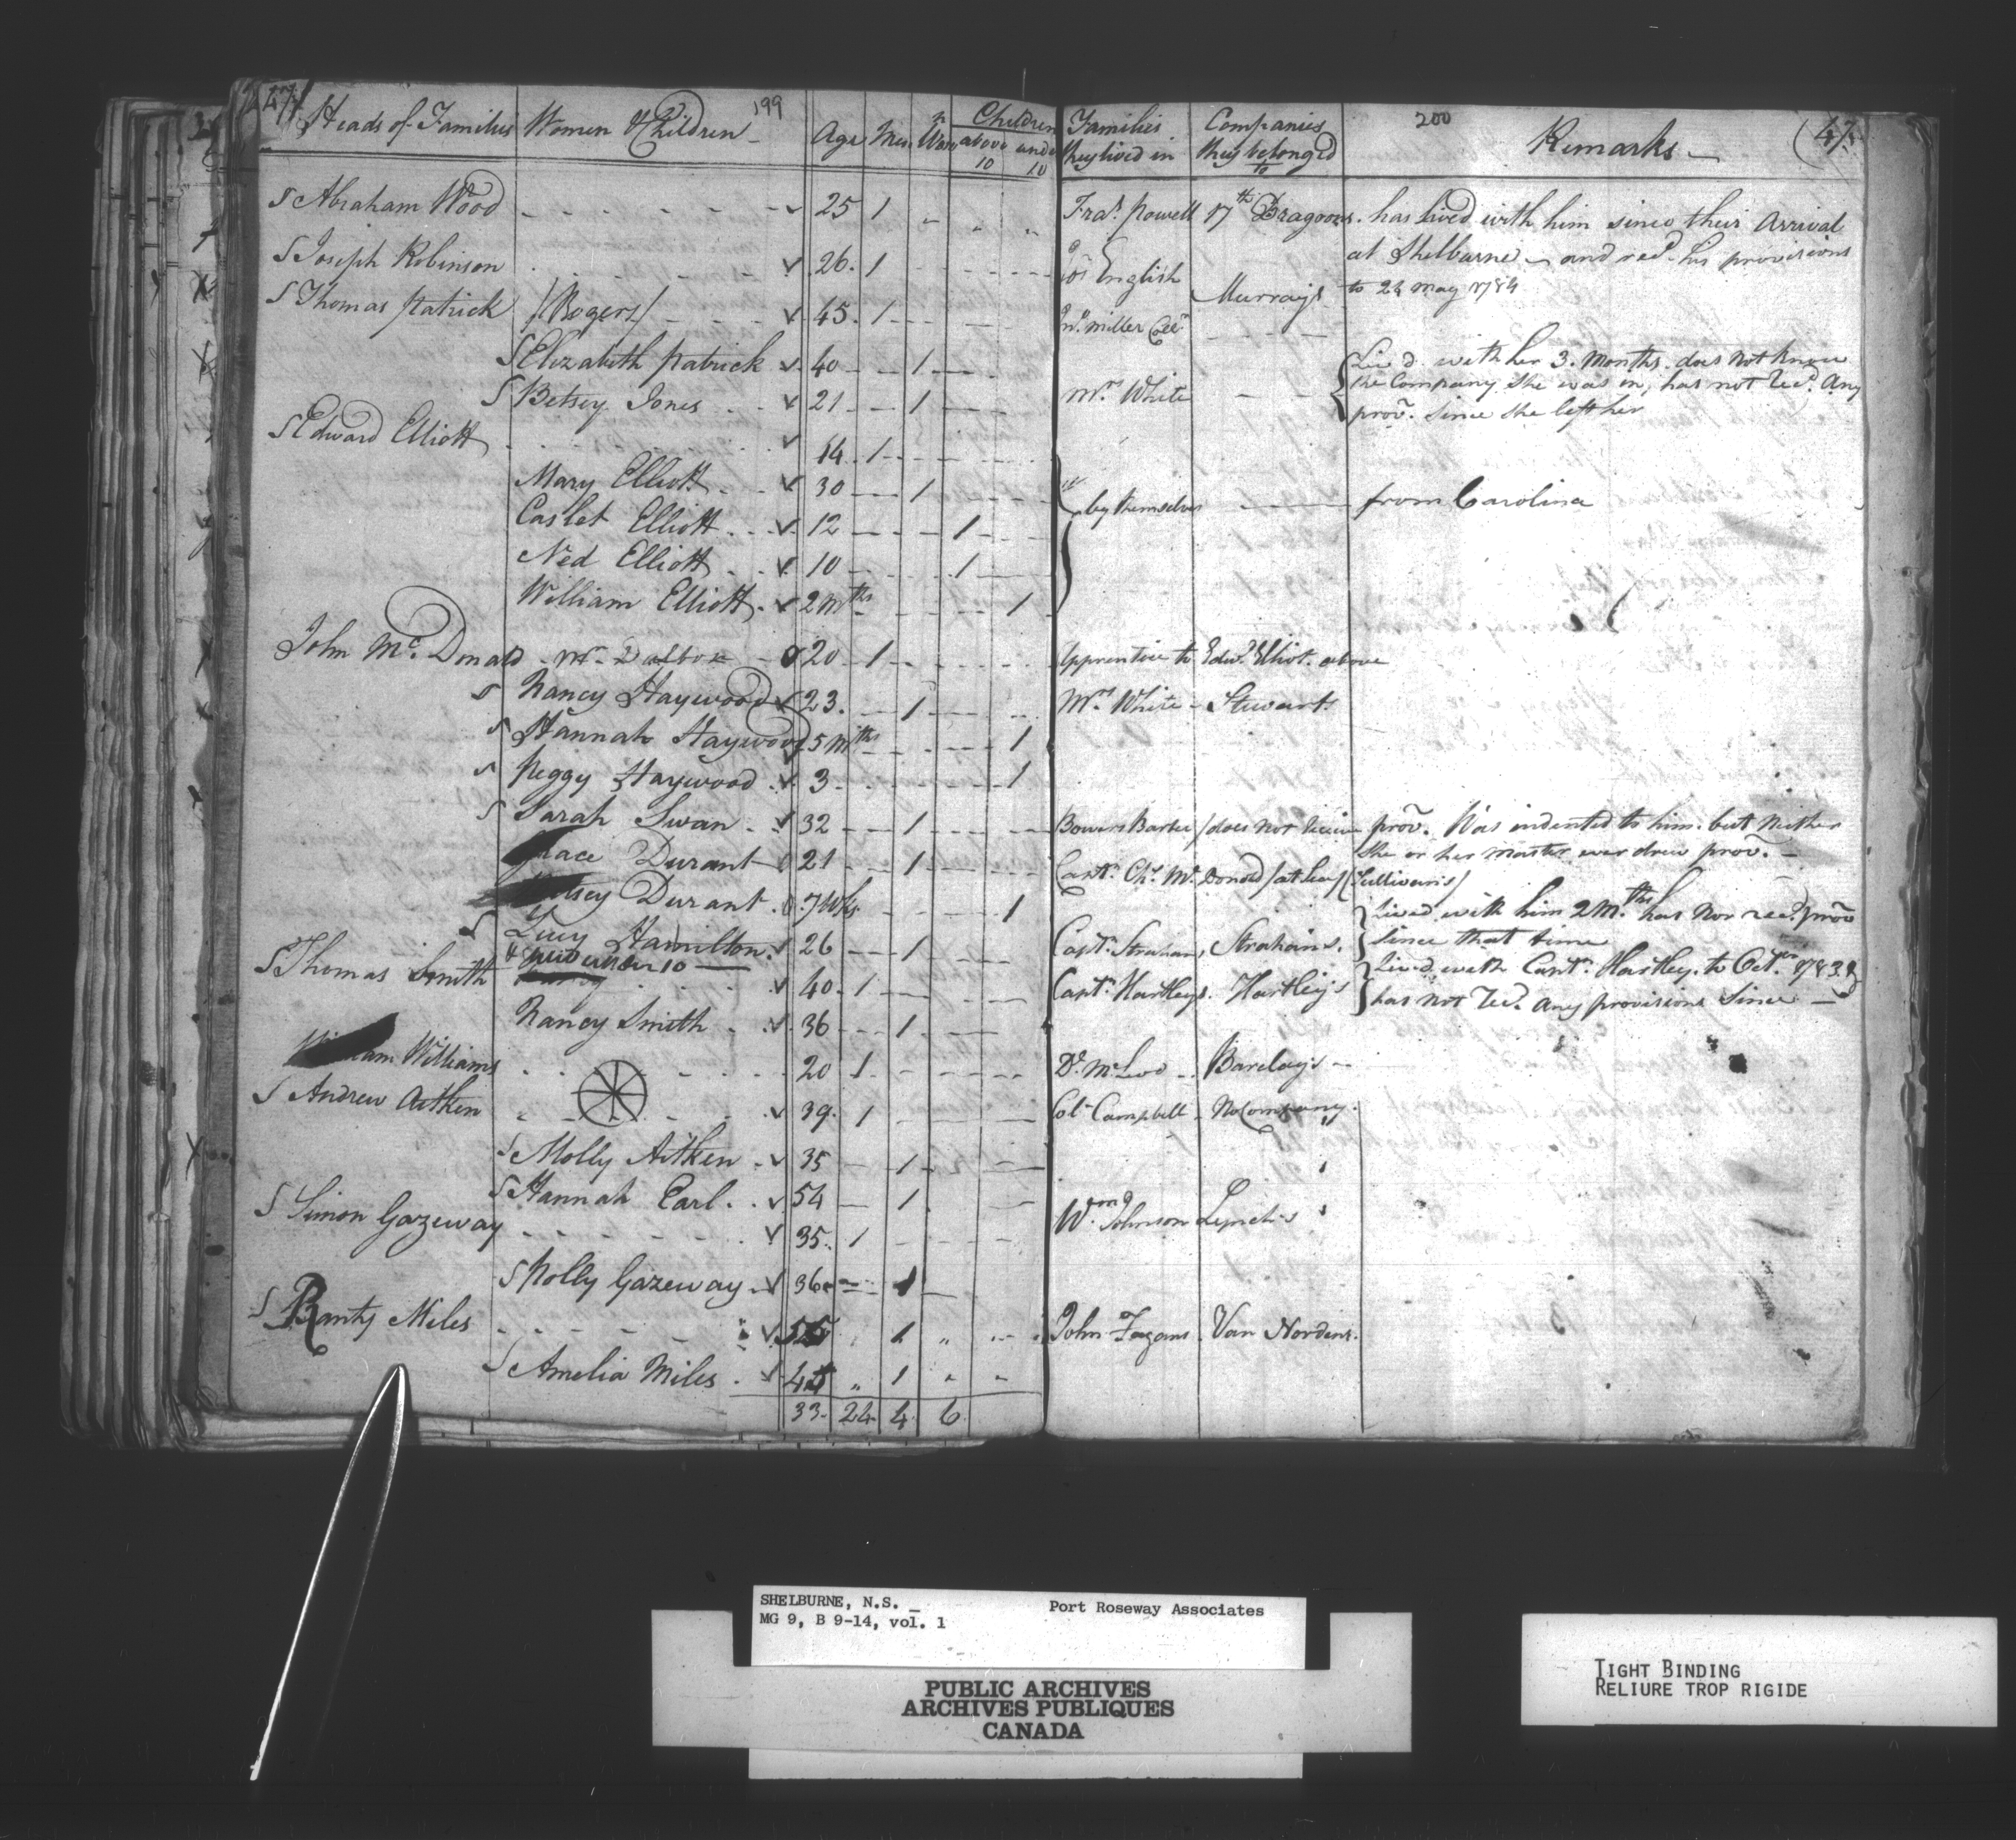 47
199
Heads of Families Women & Children Age Men Wom Children above 10 under 10
S Abraham Wood 25 1
S Joseph Robinson 26 1
S Thomas Patrick /Rogers/ 45 1
S Elizabeth Patrick 40 1
S Betsey Jones 21 1
S Edward Elliott 14 1
Mary Elliott 30 1
Caslet Elliott 12 1
Ned Elliott 10 1
William Elliott 2 Mths 1
John McDonald 20 1
S Nancy Haywood 23 1
S Hannah Haywood 5 Mths 1
S Peggy Haywood 3 1
S Sarah Swan 32 1
Grace Durant 21 1
Durant 7 Wks 1
S Lucy Hamilton 26 1
under 10
S Thomas Smith 40 1
Nancy Smith 36 1
Williams 20 1
S Andrew Aitken 39 1
S Molly Aitken 35 1
S Hannah Earl 54 1
S Simon Gazeway 35 1
S Molly Gazeway 36 1
S Miles 1
S Amelia Miles 1
33 24 4 6
200
47
Families they lived in Companies they belonged to Remarks
Fras. Powell 17th Dragoons. has lived with him since their Arrival
at Shelburne and recd. his provisions
English Murrays to 24 May 1784
Miller
Liv'd with her 3 Months does not know
Mrs. White the Company she was in, has not recd. Any
prov. since she left her
by themselves from Carolina
Apprentice to Edwd. Elliot above
Mrs. White Stewarts
/does not receive prov. Was indented to him but Neither
she or her master ever drew prov.
Capt. Chs. McDonald /at Sea/ (Sullivans/
Lived with him 2 Mths has nor recd. prov
Capt. Strahan, Strahans. since that time
Lived with Capt. Hartley to Octr. 1783 &
Capt. Hartleys. Hartleys has not recd. Any provisions Since
Dr. McLeod Barclays
Col. Campbell No Company.
Wm. Johnson Lynchs
John Fagans Van Nordens.
SHELBURNE, N.S. _ Port Roseway Associates
MG 9, B 9-14, vol. 1
PUBLIC ARCHIVES
ARCHIVES PUBLIQUES
CANADA
TIGHT BINDING
RELIURE TROP RIGIDE